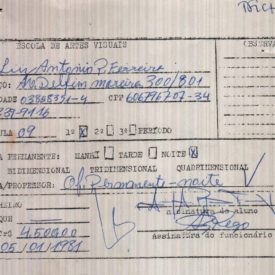 ESCOLA DE ARTES VISUAIS
OBSERVA
Luiz Antonio P. Ferreira
Av. Delfim Moreira 300/801
DADE 03868394-4 CPF 606796707-34
239-9116
ULA 09 1º X 2º 3º PERÍODO
A PERMANENTE: MANHÃ TARDE NOITE X
BIDIMENSIONAL TRIDIMENSIONAL QUADRIDIMENSIONAL
A/PROFESSOR: Of. Permanente - noite
QUE
Cr$ 4.500,00
assinatura do aluno
05/01/1981
Assinatura do funcionário